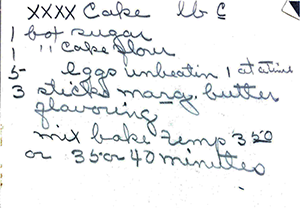 XXXX Cake lb C
1 box sugar
1 " cake flour
5 eggs unbeatin 1 at a time
3 sticks marg. butter
flavoring
mix bake temp 350
or 35 or 40 minuttes